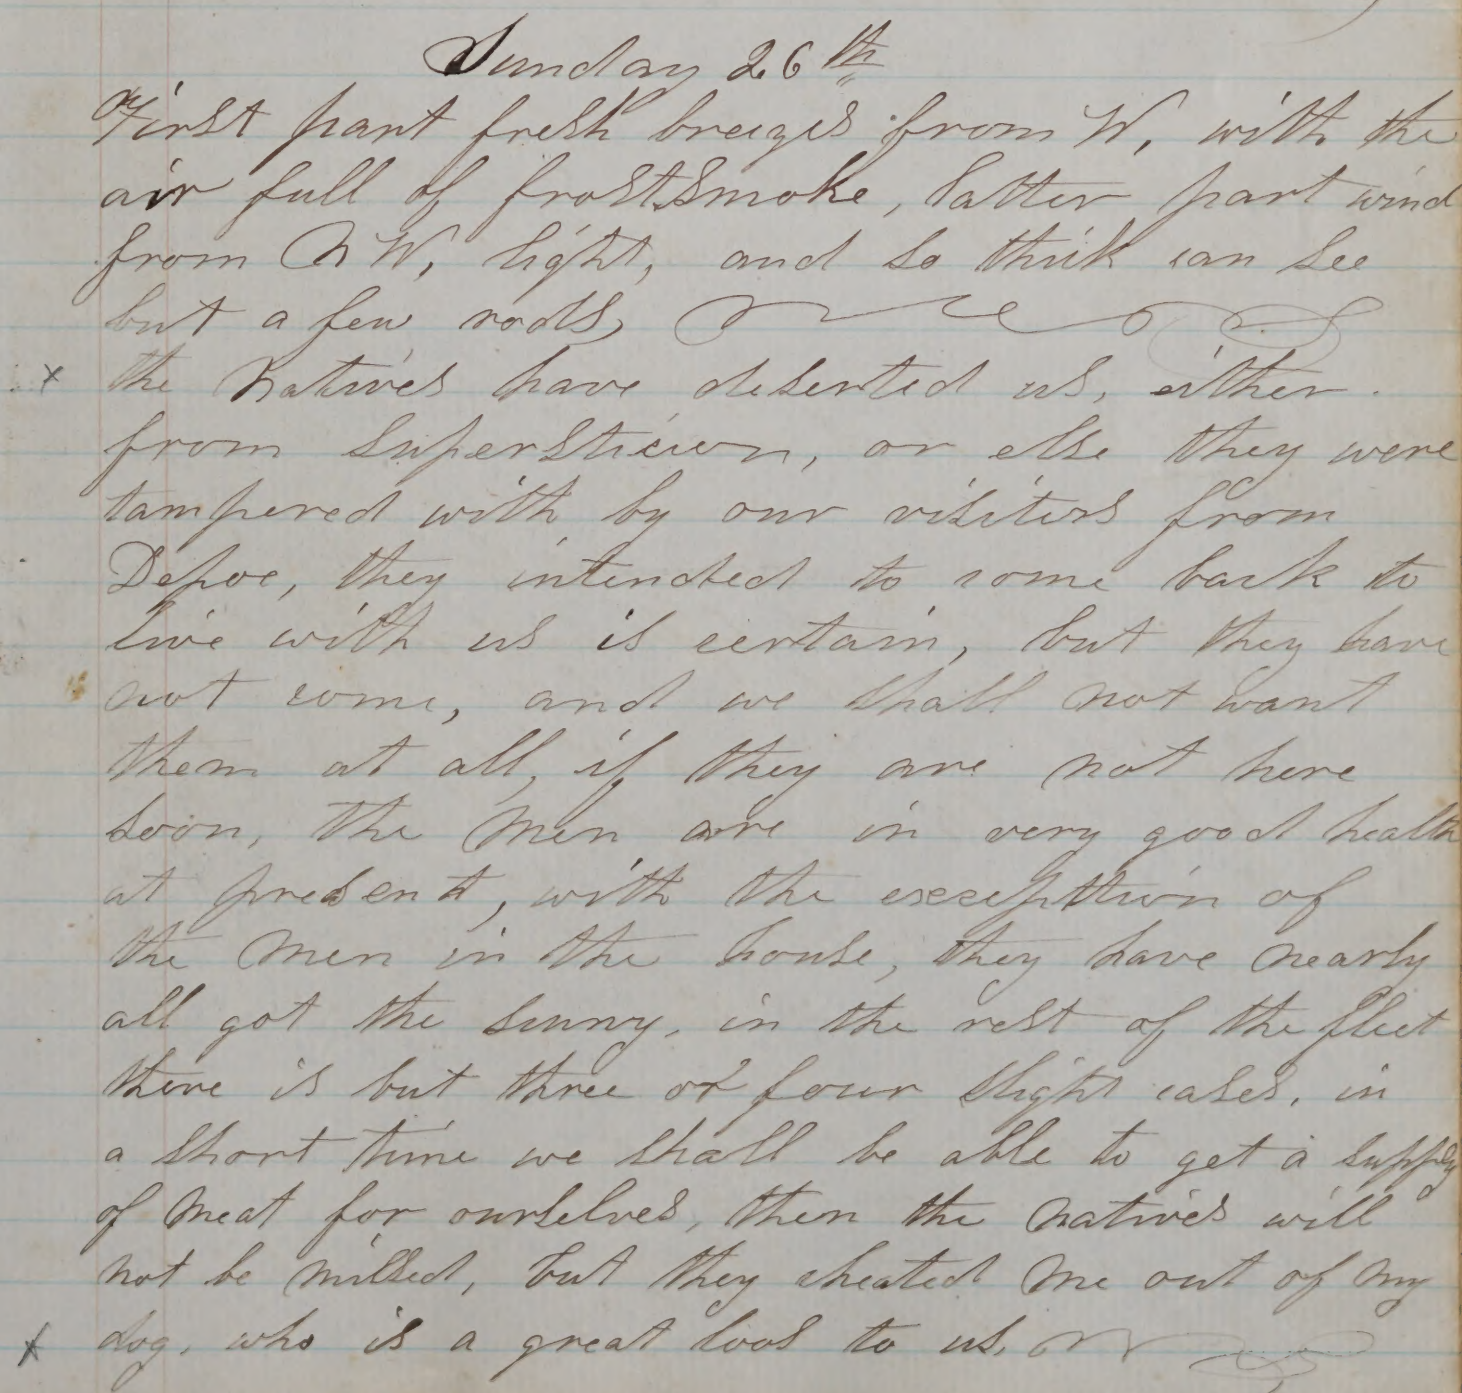 Sunday 26th
First part fresh breezes from W, with the
air full of frost smoke, latter part wind
from NW, light, and so thick can see
but a few rods,
x the natives have deserted us, either
from supersticion, or else they were
tampered with by our visiters from
Depoe, they intended to come back to
live with us is certain, but they have
not come, and we shall not want
them at all, if they are not here
soon, the men are in very good health
at present, with the excepttion of
the men in the house, they have nearly
all got the scurvy, in the rest of the fleet
there is but three or four slight cases, in
a short time we shall be able to get a supply
of meat for ourselves, then the natives will
not be missed, but they cheated me out of my
x dog, who is a great loos to us,